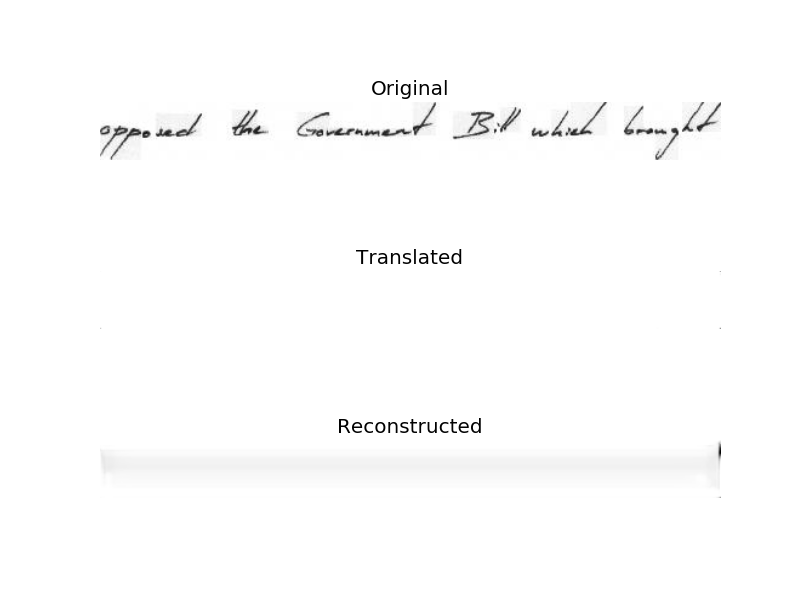 Original
opposed the Government Bill which brought
Translated
Reconstructed